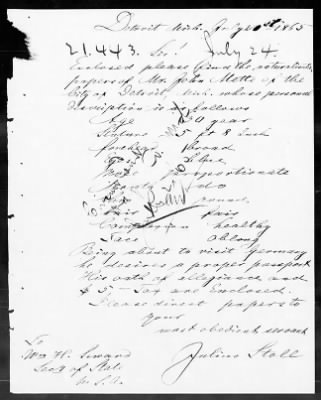 Detroit Mich. July 21st 1865
21.443. Sir! July 24.
Enclosed please find the naturalization
papers of Mr. John Motts of the
City of Detroit, Mich. whose personal
description is as follows
Age 30 year
Stature 5 ft 8 Inch
Forehead broad
Eyes blue
Nose proportionate
Mouth do
Chin round
Hair fair
Complexion healthy
Face Oblong
Being about to visit Germany
he desires a proper passport
His oath of allegiance and
$5 - Tax are Enclosed.
Please direct papers to
your
most obedient servant
Julius Stoll
To
Wm H. Seward
Secy of State
U.S.A.